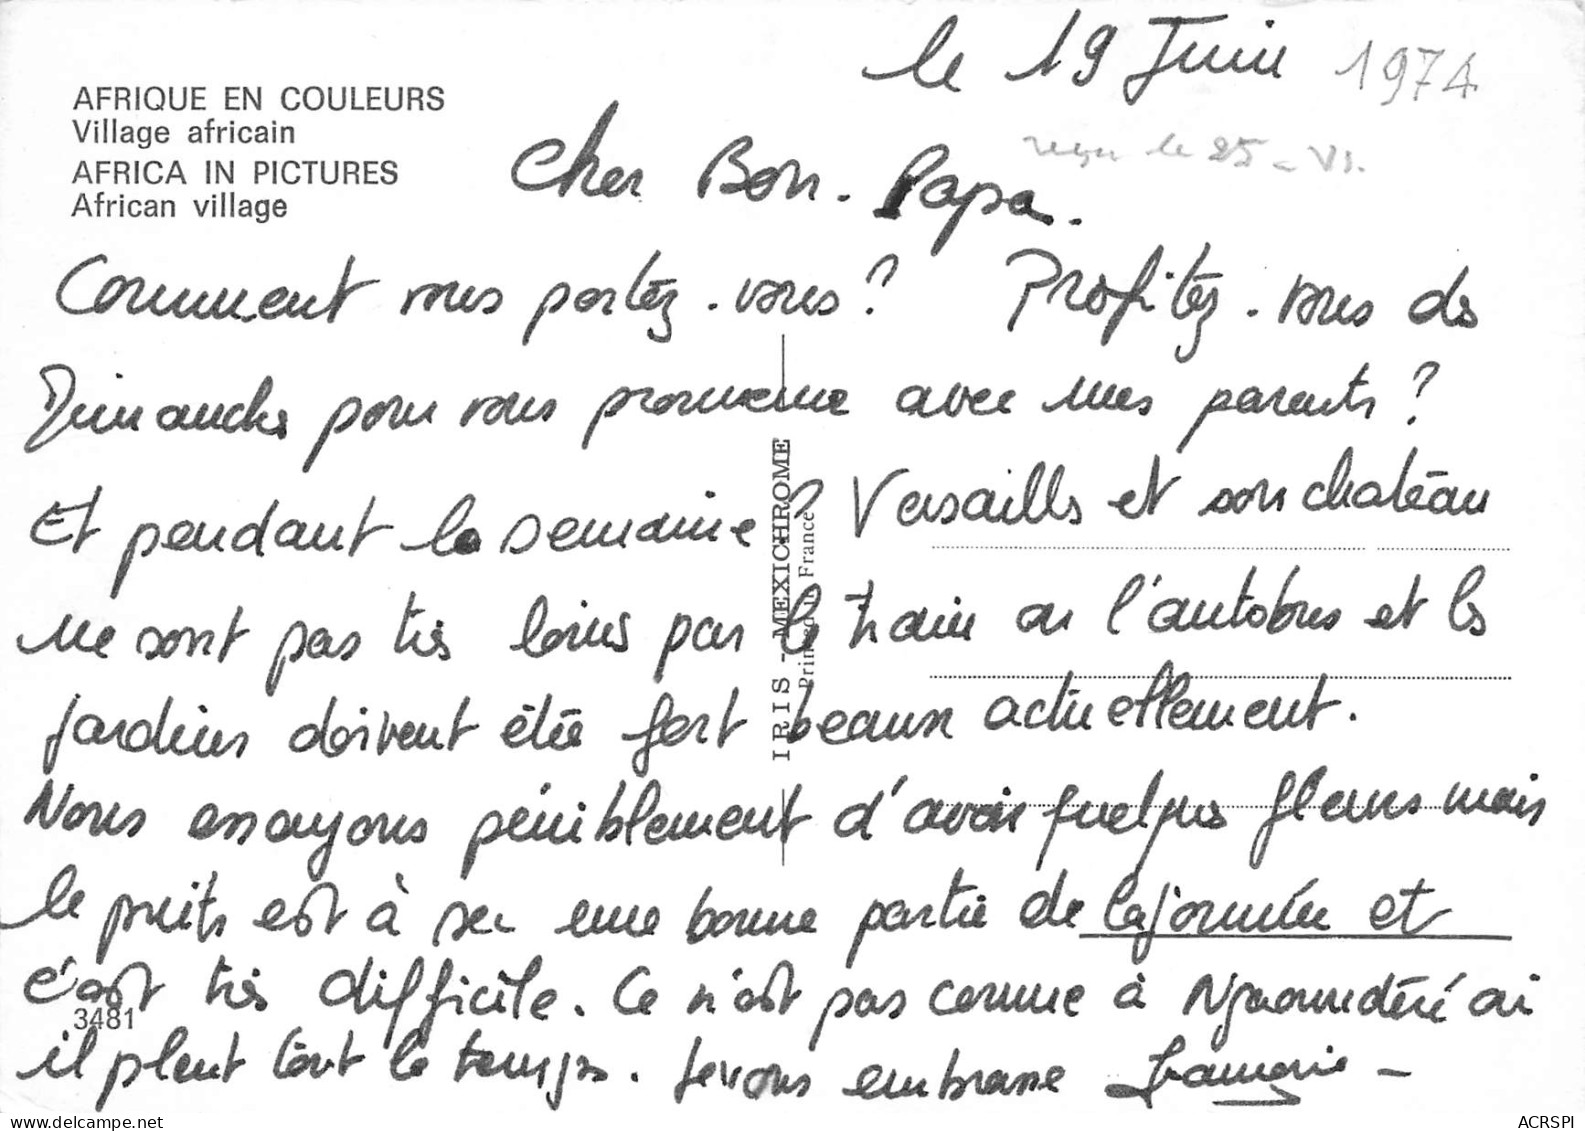 le 19 Juin 1974
AFRIQUE EN COULEURS
Village africain
AFRICA IN PICTURES
African village
reçu le 25 - VI.
Cher Bon-Papa.
Comment vous portez-vous ? Profitez-vous du
Dimanche pour vous promener avec mes parents ?
Et pendant la semaine ? Versailles et son château
ne sont pas très loins par le train ou l'autobus et les
jardins doivent être fort beaux actuellement.
Nous essayons péniblement d'avoir quelques fleurs mais
le puits est à sec une bonne partie de la journée et
c'est très difficile. Ce n'est pas comme à Ngaoundéré où
il pleut tout le temps. Je vous embrasse
3481
IRIS - MEXICHROME
Printed in France
ACRSPI